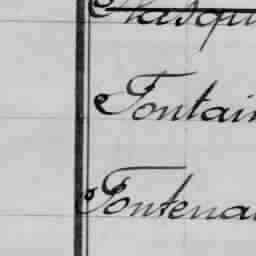 Fontain
Fontena